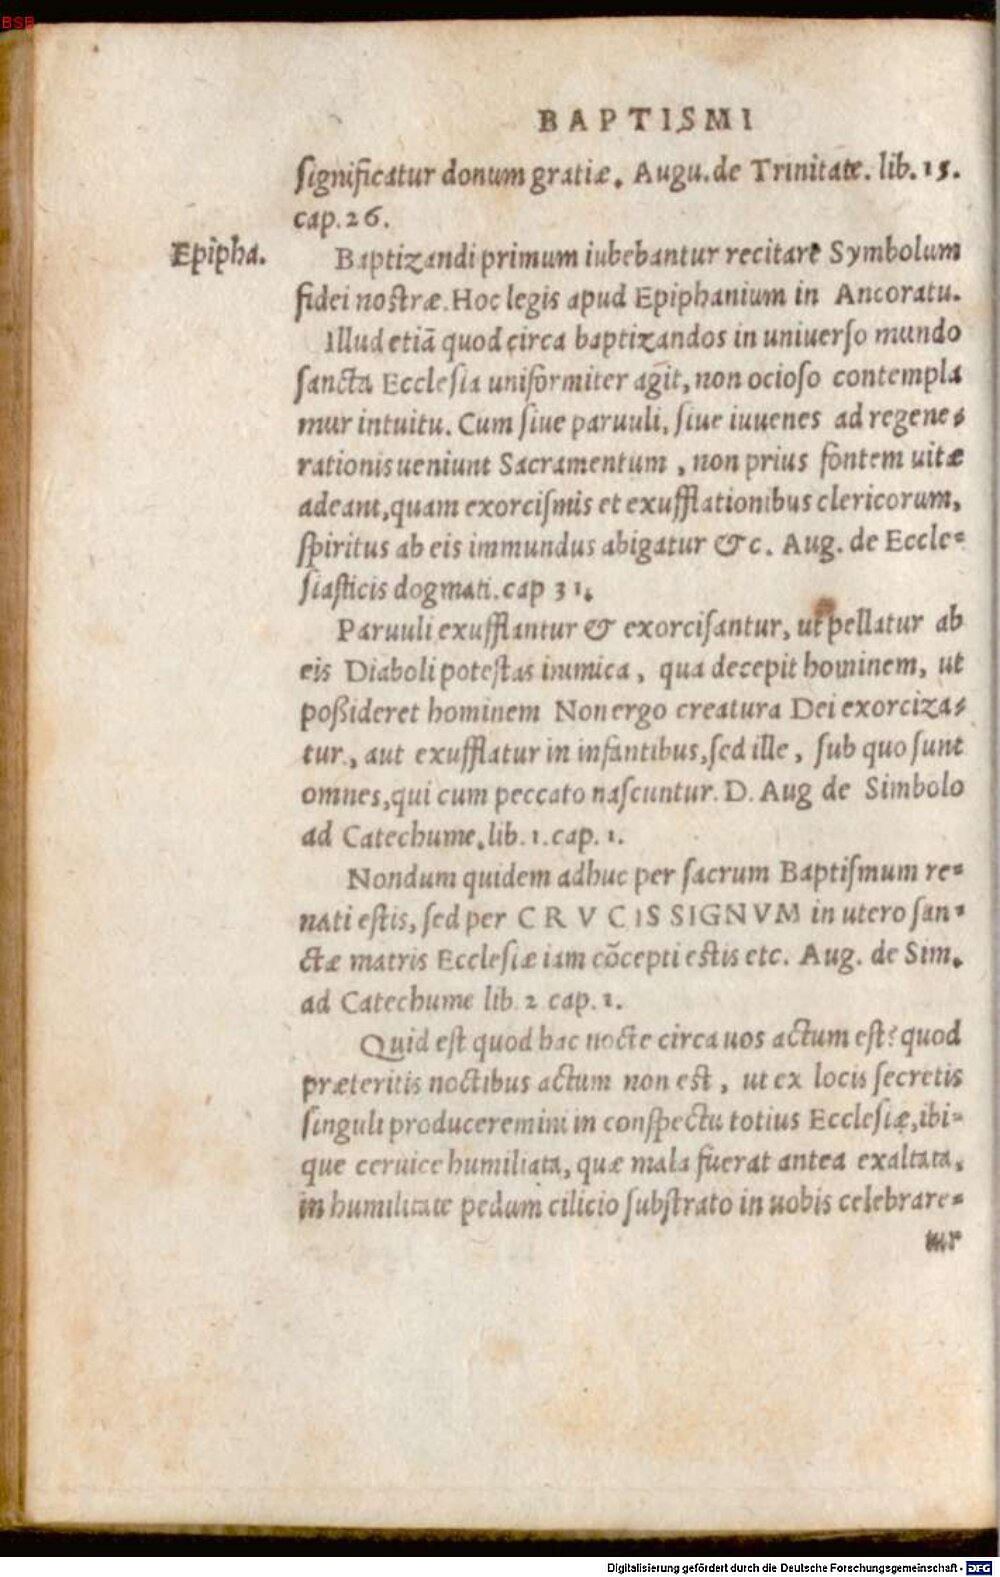 BSB
BAPTISMI
ſignificatur donum gratiæ. Augu. de Trinitate. lib. 15.
cap. 26.
Epipha.
Baptizandi primum iubebantur recitare Symbolum
fidei nostræ. Hoc legis apud Epiphanium in Ancoratu.
Illud etiā quod circa baptizandos in uniuerſo mundo
ſancta Ecclesia uniformiter agit, non ocioſo contempla
mur intuitu. Cum ſiue paruuli, ſiue iuuenes ad regene⸗
rationis ueniunt Sacramentum, non prius fontem uitæ
adeant, quam exorciſmis et exufflationibus clericorum,
ſpiritus ab eis immundus abigatur &c. Aug. de Eccle⸗
ſiaſticis dogmati. cap 31.
Paruuli exufflantur & exorciſantur, ut pellatur ab
eis Diaboli poteſtas inimica, qua decepit hominem, ut
poßideret hominem Non ergo creatura Dei exorciza⸗
tur, aut exufflatur in infantibus, ſed ille, ſub quo ſunt
omnes, qui cum peccato naſcuntur. D. Aug de Simbolo
ad Catechume. lib. 1. cap. 1.
Nondum quidem adhuc per ſacrum Baptiſmum re⸗
nati eſtis, ſed per CRVCIS SIGNVM in utero ſan⸗
ctæ matris Eccleſiæ iam cōcepti eſtis etc. Aug. de Sim.
ad Catechume lib 2 cap. 1.
Quid eſt quod hac nocte circa uos actum eſt? quod
præteritis noctibus actum non eſt, ut ex locis ſecretis
ſinguli produceremini in conſpectu totius Eccleſiæ, ibi⸗
que ceruice humiliata, quæ mala fuerat antea exaltata,
in humilitate pedum cilicio ſubſtrato in uobis celebrare⸗
tur
Digitalisierung gefördert durch die Deutsche Forschungsgemeinschaft - DFG